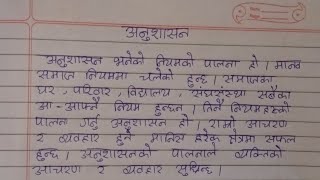 अनुशासन
अनुशासन भनेको नियमको पालना हो। मानव
समाज नियममा चलेको हुन्छ। समाजका
घर, परिवार, विद्यालय, संघसंस्था सबैका
आ-आफ्नै नियम हुन्छन्। तिनै नियमहरूको
पालना गर्नु अनुशासन हो। राम्रो आचरण
र व्यवहार हुने मानिस हरेक क्षेत्रमा सफल
हुन्छ। अनुशासनको पालनाले व्यक्तिको
आचरण र व्यवहार सुध्रिन्छ।